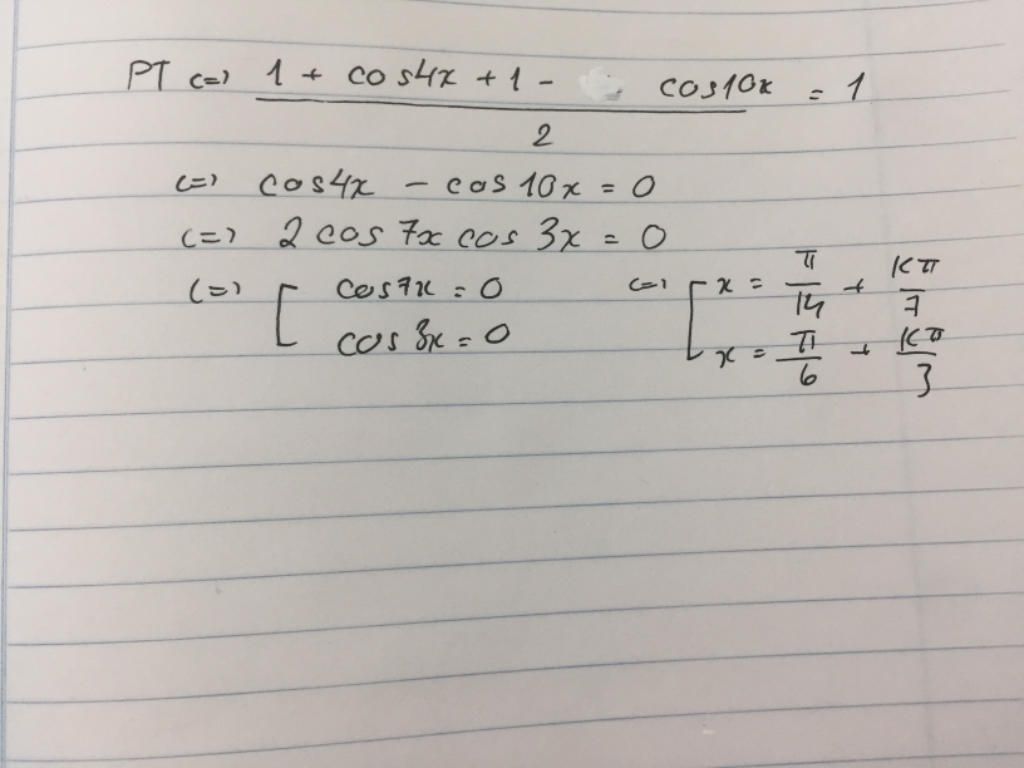 PT <=> (1 + cos4x + 1 - cos10x)/2 = 1
<=> cos4x - cos10x = 0
<=> 2 cos 7x cos 3x = 0
<=> [ cos7x = 0 <=> [ x = π/14 + kπ/7
cos3x = 0 x = π/6 + kπ/3